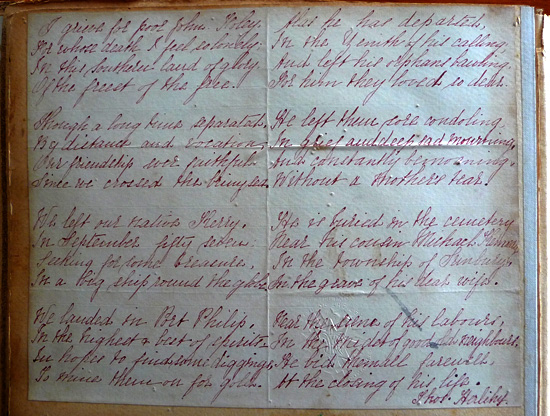 I grieve for poor John Foley.
For whose death I feel so lonely.
In this southern land of glory.
Of the freest of the free.

Though a long time separated,
By distance and vocation,
Our friendship ever faithful
Since we crossed the briny sea.

We left our native Kerry.
In September fifty seven.
Seeking for some treasure,
In a big ship round the globe.

We landed in Port Philip.
In the highest & best of spirits
In hopes to find some diggings,
To mine them on for gold.

Alas he has departed,
In the Zenith of his calling,
And left his orphans bawling,
For him they loved so dear.

He left them sore condoling
In grief and deep sad mourning,
And constantly bemoaning,
Without a mothers tear.

He is buried in the cemetery
Near his cousin Michael
In the township of
In the grave of his dear wife.

Near the scene of his labours,
In the midst of good neighbours
He bid them all farewell
At the closing of his life.
Thos.